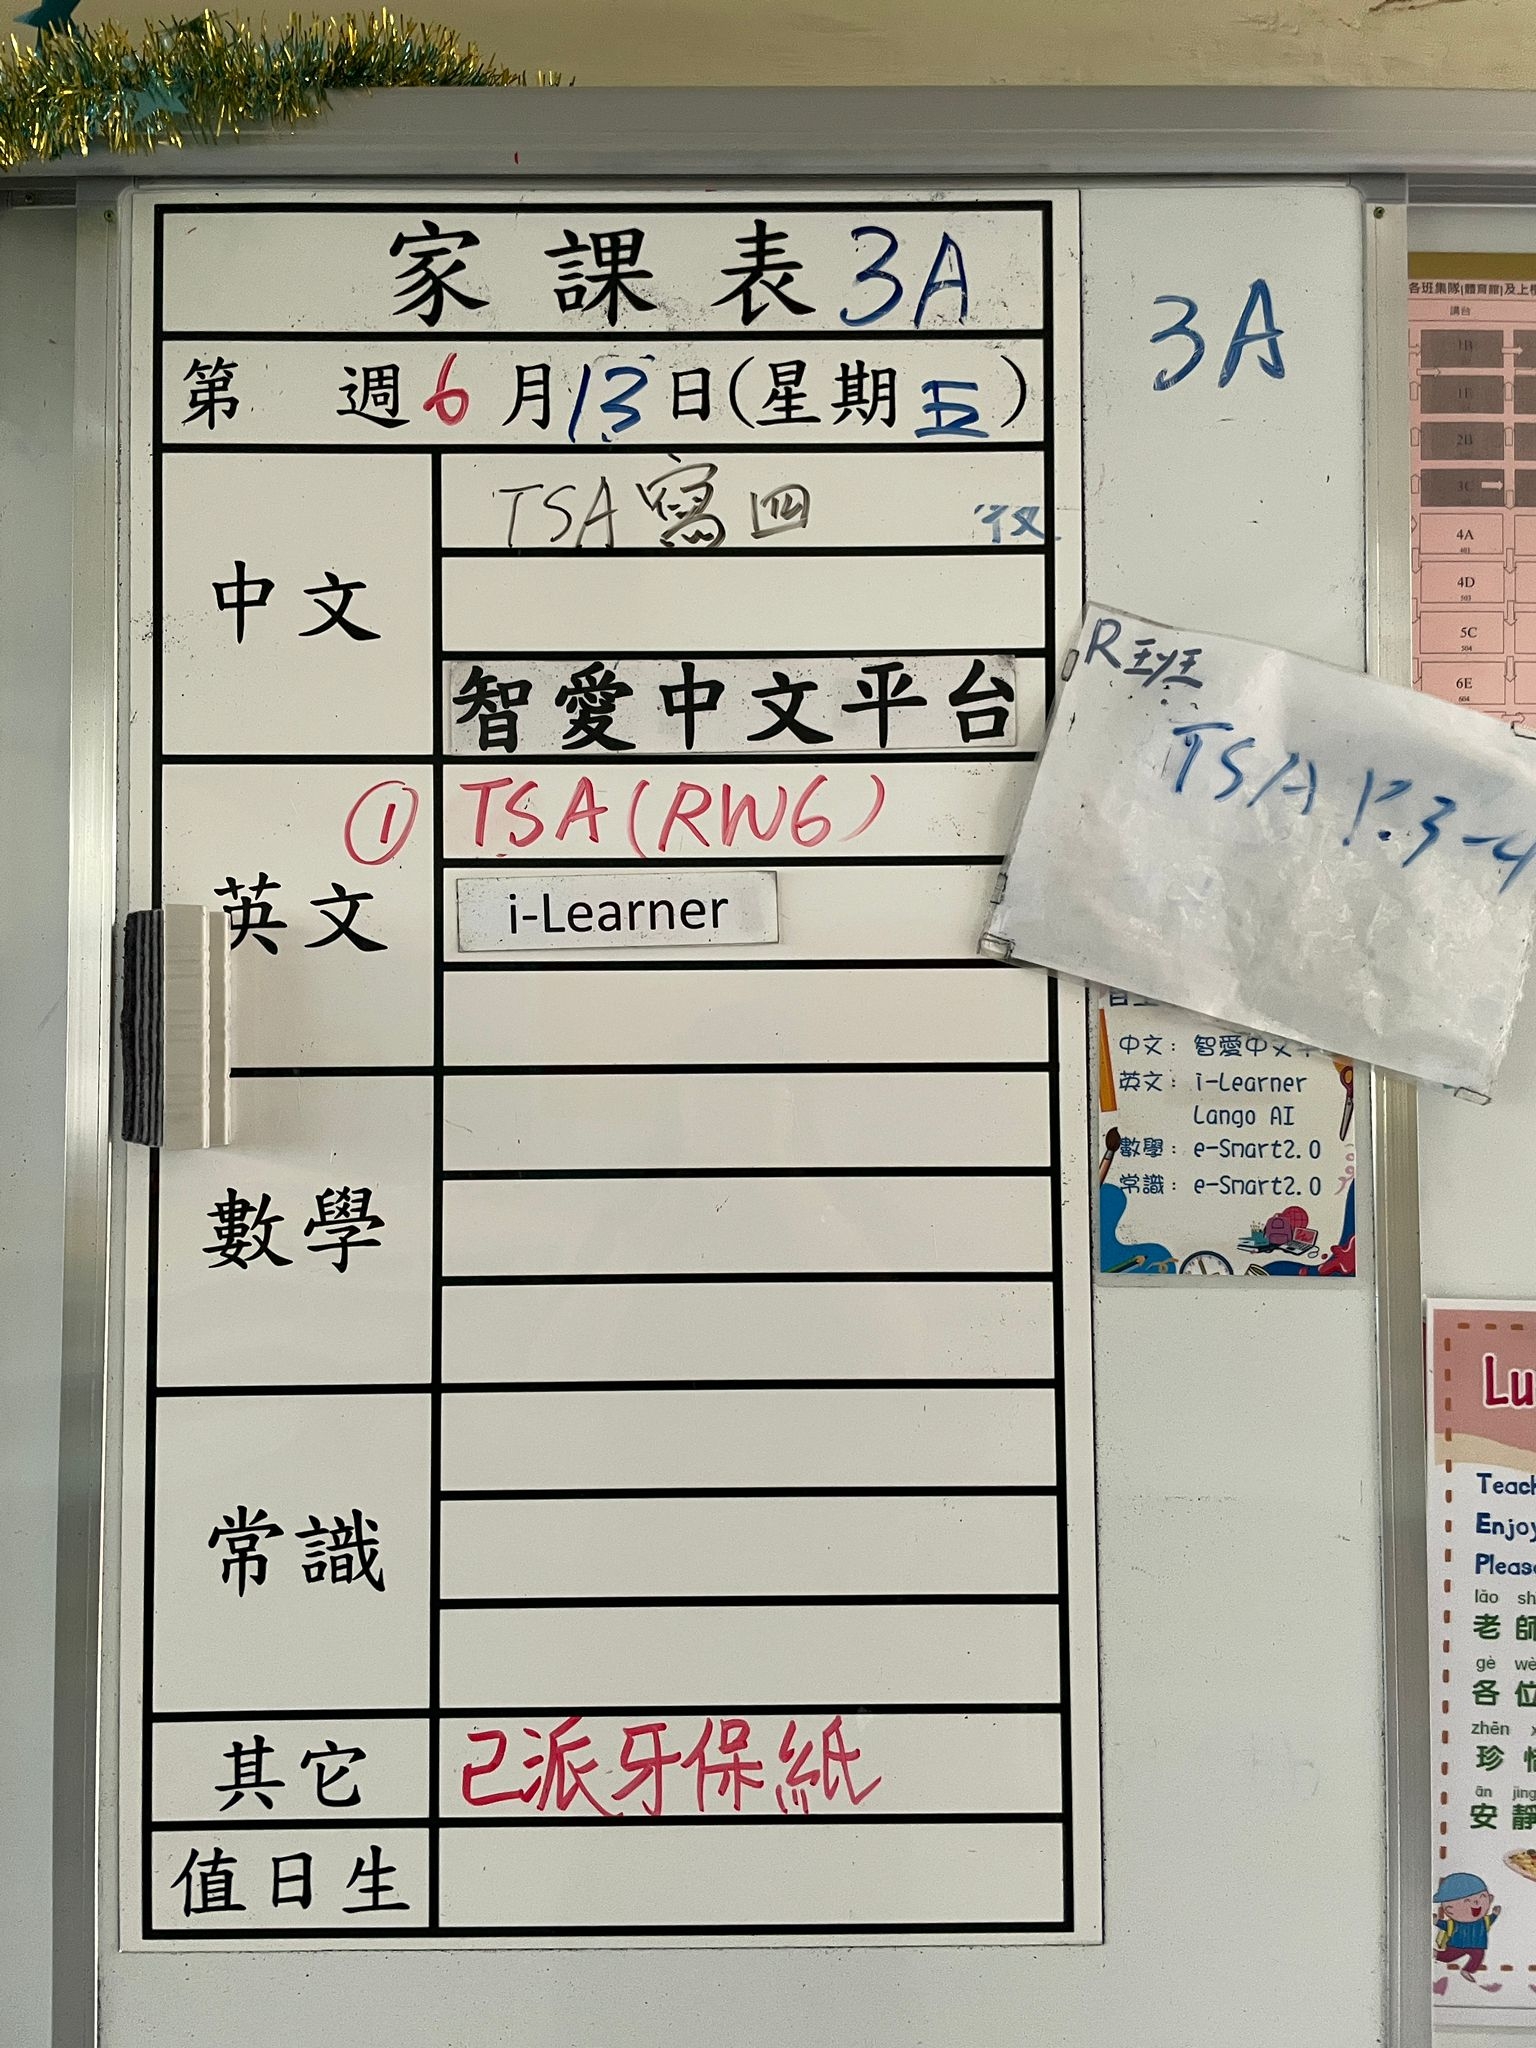 家課表 3A
第 週 6 月 13 日(星期 五)
中文
TSA 寫四
智愛中文平台
英文
① TSA (RW6)
i-Learner
數學
常識
其它
已派牙保紙
值日生
3A
R班
TSA P.3-4
中文： 智愛中文平
英文： i-Learner
Lango AI
數學： e-Smart2.0
常識： e-Smart2.0
各班集隊[體育館]及上
講台
1B
1E
2B
3C
4A
401
4D
503
5C
504
6E
604
Lu
Teach
Enjoy
Please
lǎo sh
老師
gè wè
各位
zhēn x
珍惜
ān jìng
安靜